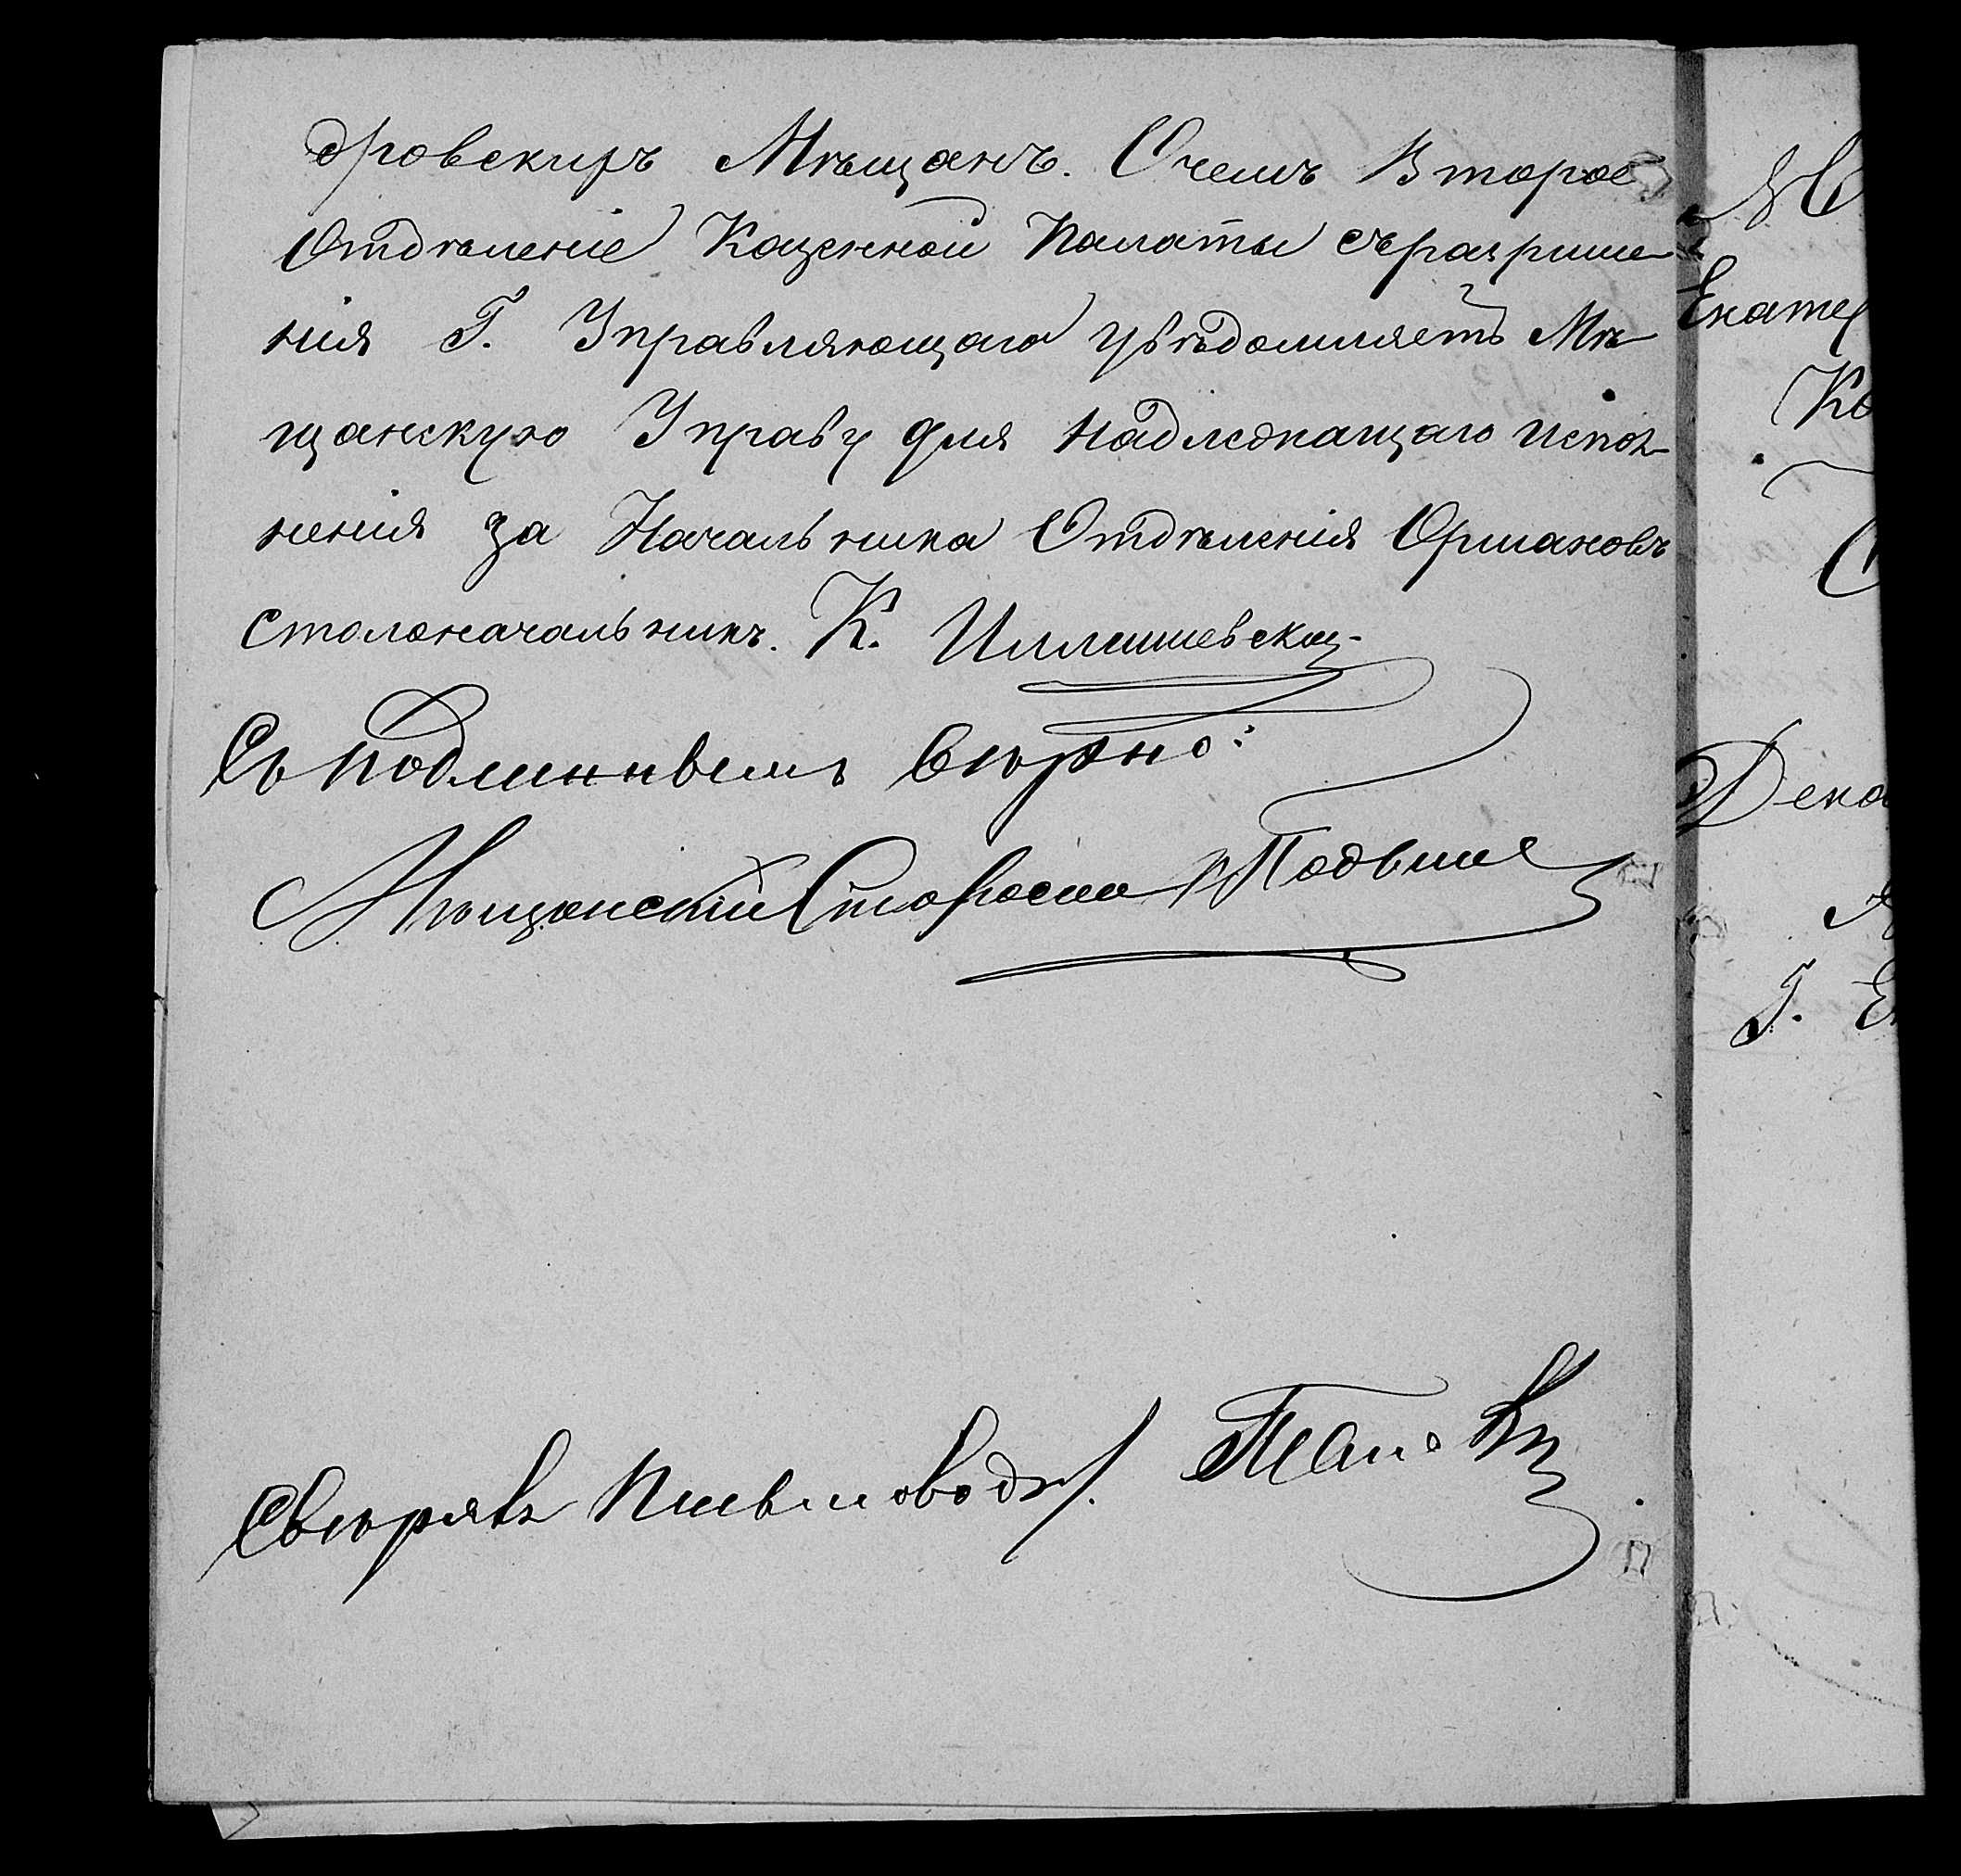 дровскихъ Мѣщанъ. О чемъ Второе
Отдѣленіе Казенной Палаты съ разрише-
нія Г. Управляющаго увѣдомляетъ Мѣ-
щанскую Управу для надлежащаго испол-
ненія за Начальника Отдѣленія
столоначальникъ. К.
Съ подлиннымъ вѣрно:
Мѣщанскій Староста
Свѣрялъ Письмоводи.
№
Екате
Ко
Дека
Г. Е